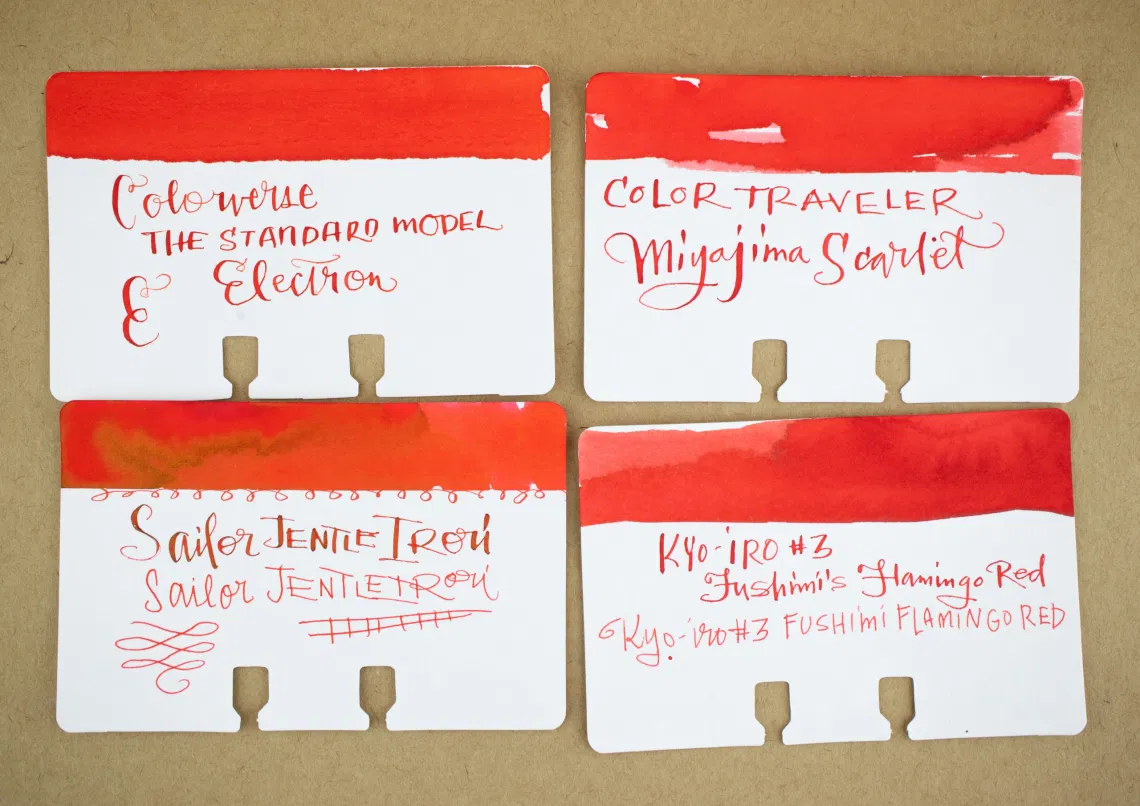 Colorverse
THE STANDARD MODEL
E Electron
COLOR TRAVELER
Miyajima Scarlet
Sailor JENTLE IRORi
Sailor JENTLE IRORi
KYO-iRO #3
Fushimi's Flamingo Red
Kyo-iro #3 FUSHiMi FLAMINGO RED